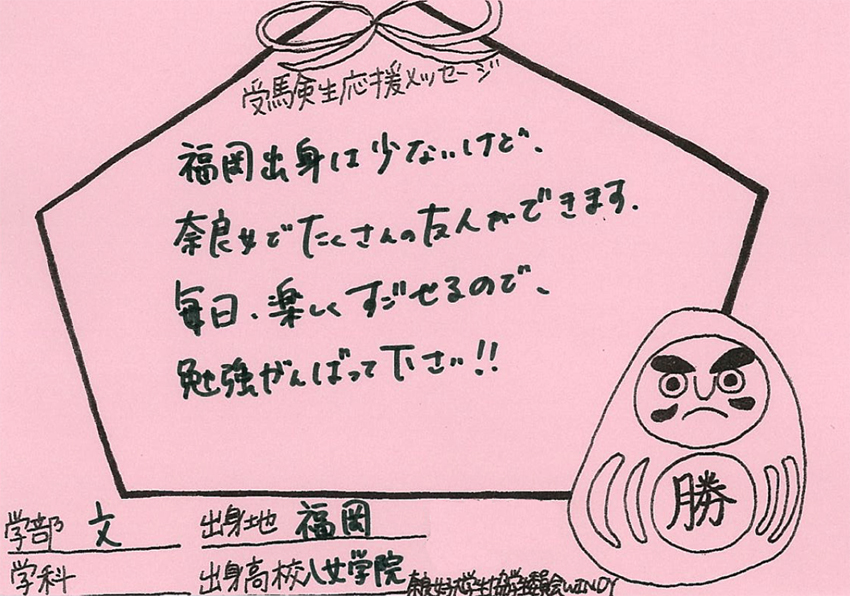 受験生応援メッセージ
福岡出身は少ないけど、
奈良女でたくさんの友人ができます.
毎日、楽しくすごせるので、
勉強がんばって下さい!!
勝
学部 文
出身地 福岡
学科
出身高校 八女学院
奈良女子大学生協学生委員会WINDY